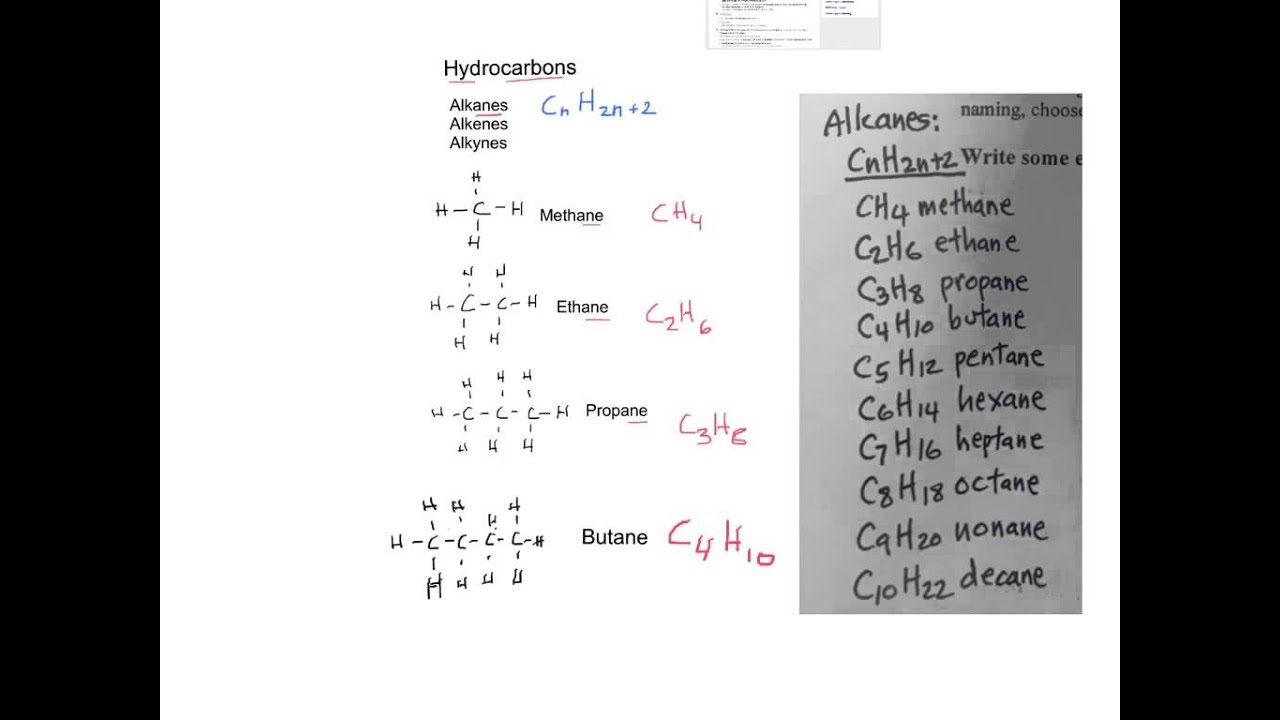 Hydrocarbons
Alkanes CnH2n+2
Alkenes
Alkynes
H
H-C-H Methane CH4
H
H H
H-C-C-H Ethane C2H6
H H
H H H
H-C-C-C-H Propane C3H8
H H H
H H H H
H-C-C-C-C-H Butane C4H10
H H H H
naming, choose
Alkanes:
CnH2n+2 Write some e
CH4 methane
C2H6 ethane
C3H8 propane
C4H10 butane
C5H12 pentane
C6H14 hexane
C7H16 heptane
C8H18 octane
C9H20 nonane
C10H22 decane